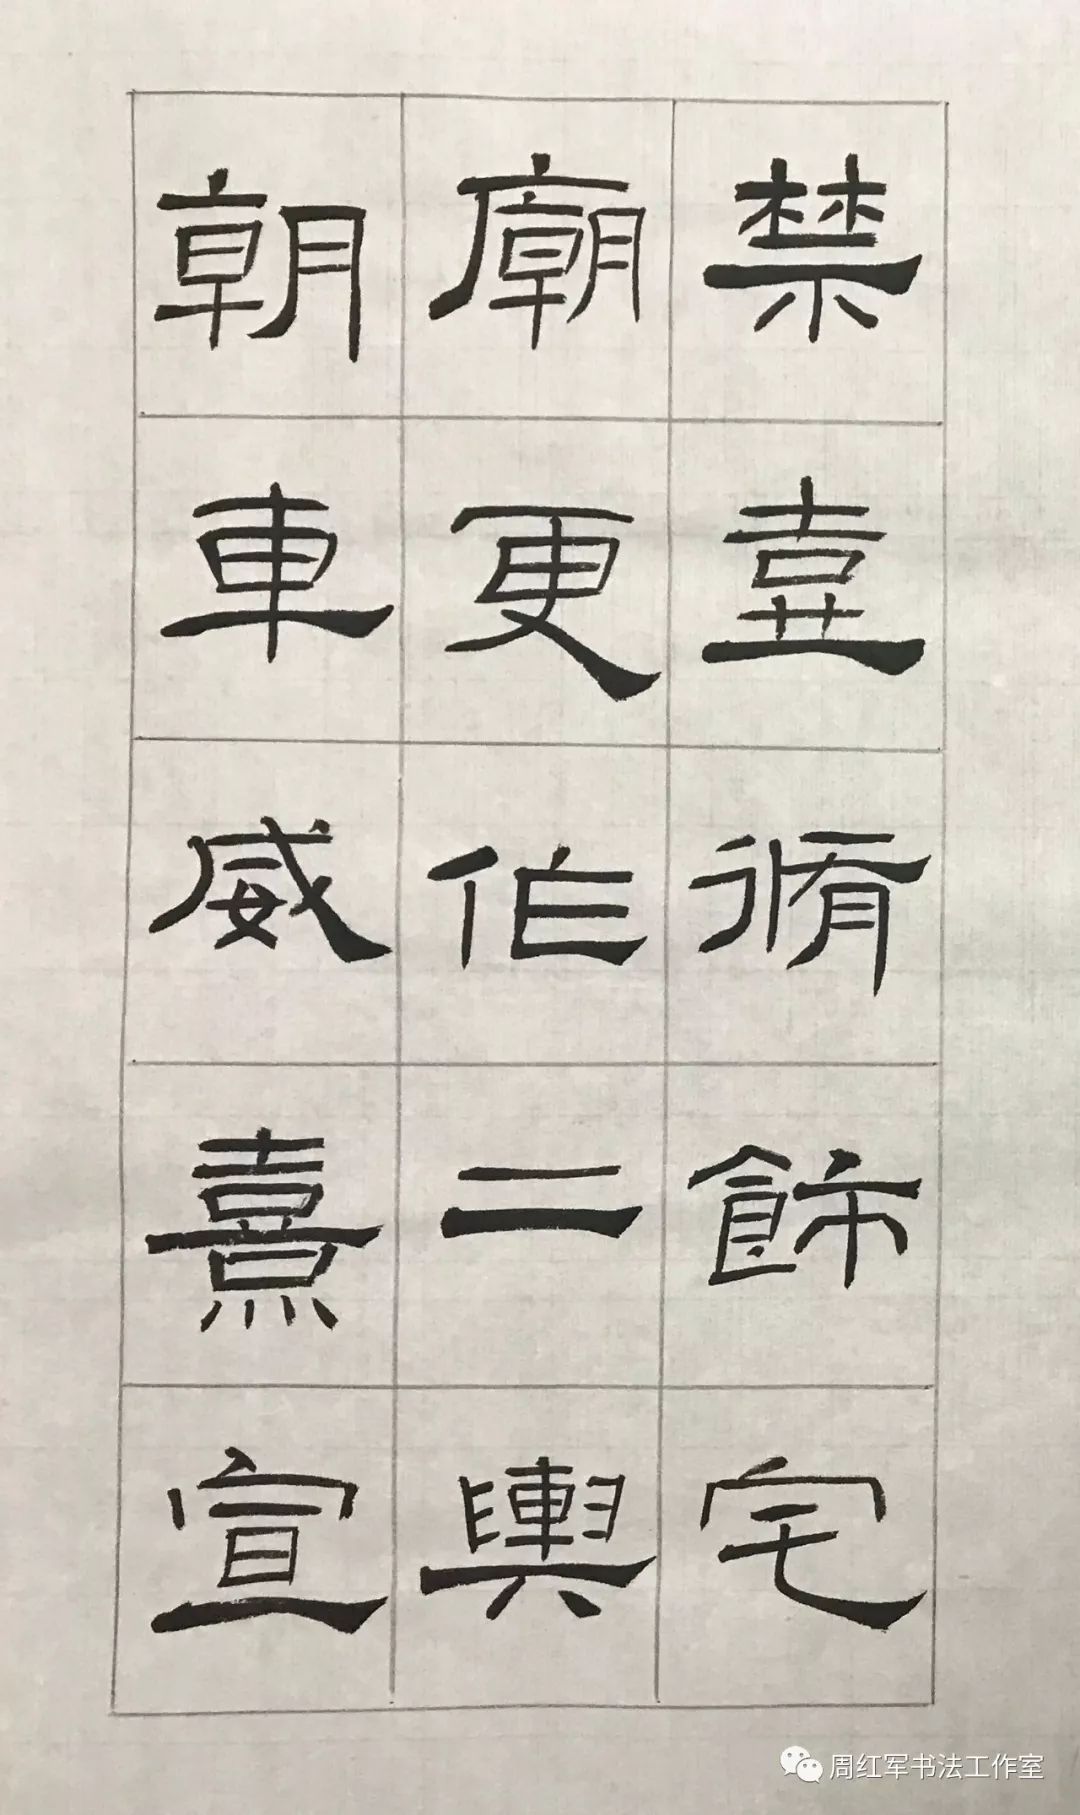 禁壺脩飾宅
廟更作二輿
朝車威熹宣
周红军书法工作室